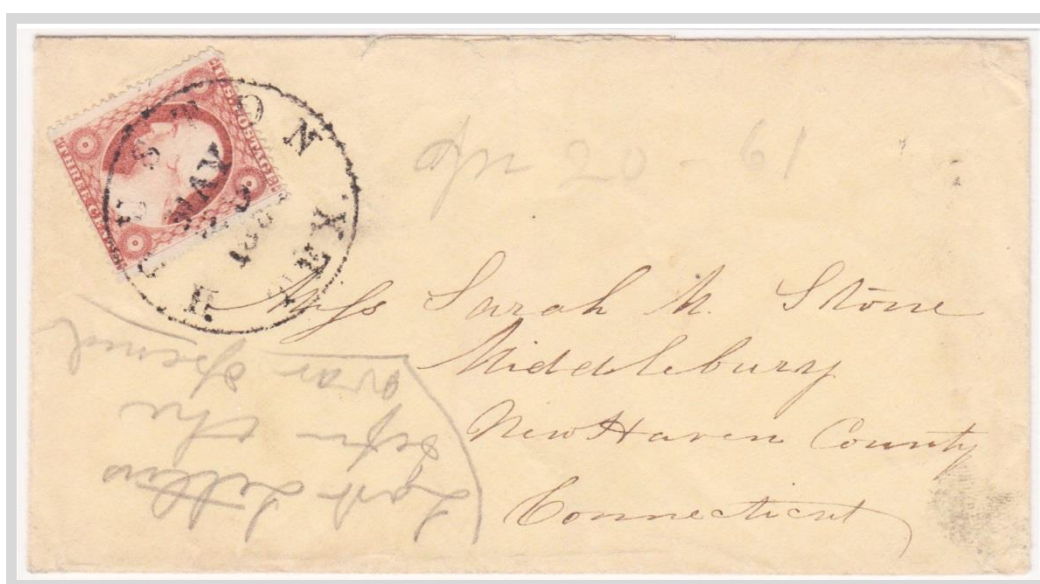 U.S. POSTAGE
THREE CENTS
HOUSTON TEX.
MAY
23
1861
Apr 20 - 61
Miss Sarah M. Stone
Middlebury
New Haven County
Connecticut
Last Letter
before the
war opened